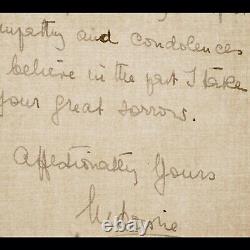 mpathy and condolences
believe in the part I take
your great sorrow.
Affectionately Yours
ebay